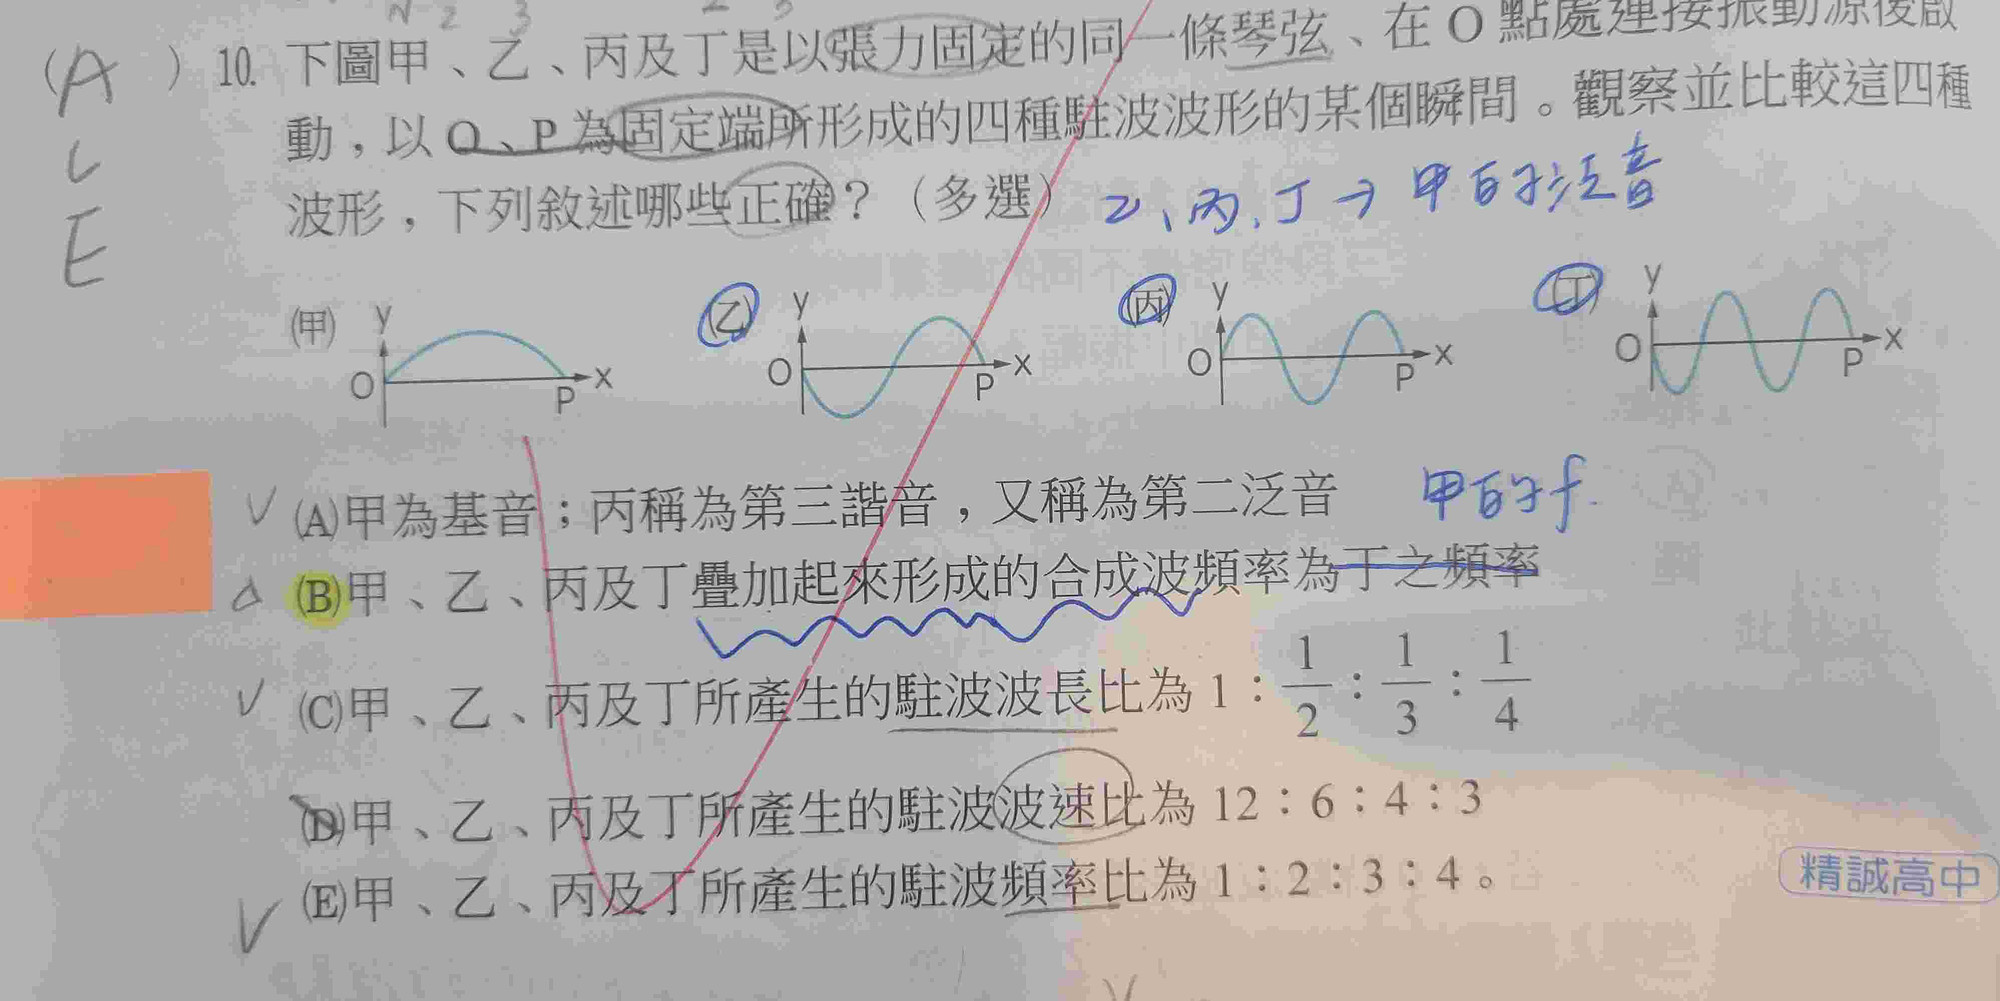 N 2 3 2 3
(A ) 10. 下圖甲、乙、丙及丁是以張力固定的同一條琴弦、在 O 點處連接振動源後啟
C 動，以 O、P 為固定端所形成的四種駐波波形的某個瞬間。觀察並比較這四種
E 波形，下列敘述哪些正確？（多選） 乙、丙、丁→甲的泛音
(甲) y O P x (乙) y O P x (丙) y O P x (丁) y O P x
V (A)甲為基音；丙稱為第三諧音，又稱為第二泛音 甲的f.
△ (B)甲、乙、丙及丁疊加起來形成的合成波頻率為丁之頻率
V (C)甲、乙、丙及丁所產生的駐波波長比為 1：1/2：1/3：1/4
(D)甲、乙、丙及丁所產生的駐波波速比為 12：6：4：3
V (E)甲、乙、丙及丁所產生的駐波頻率比為 1：2：3：4。
精誠高中